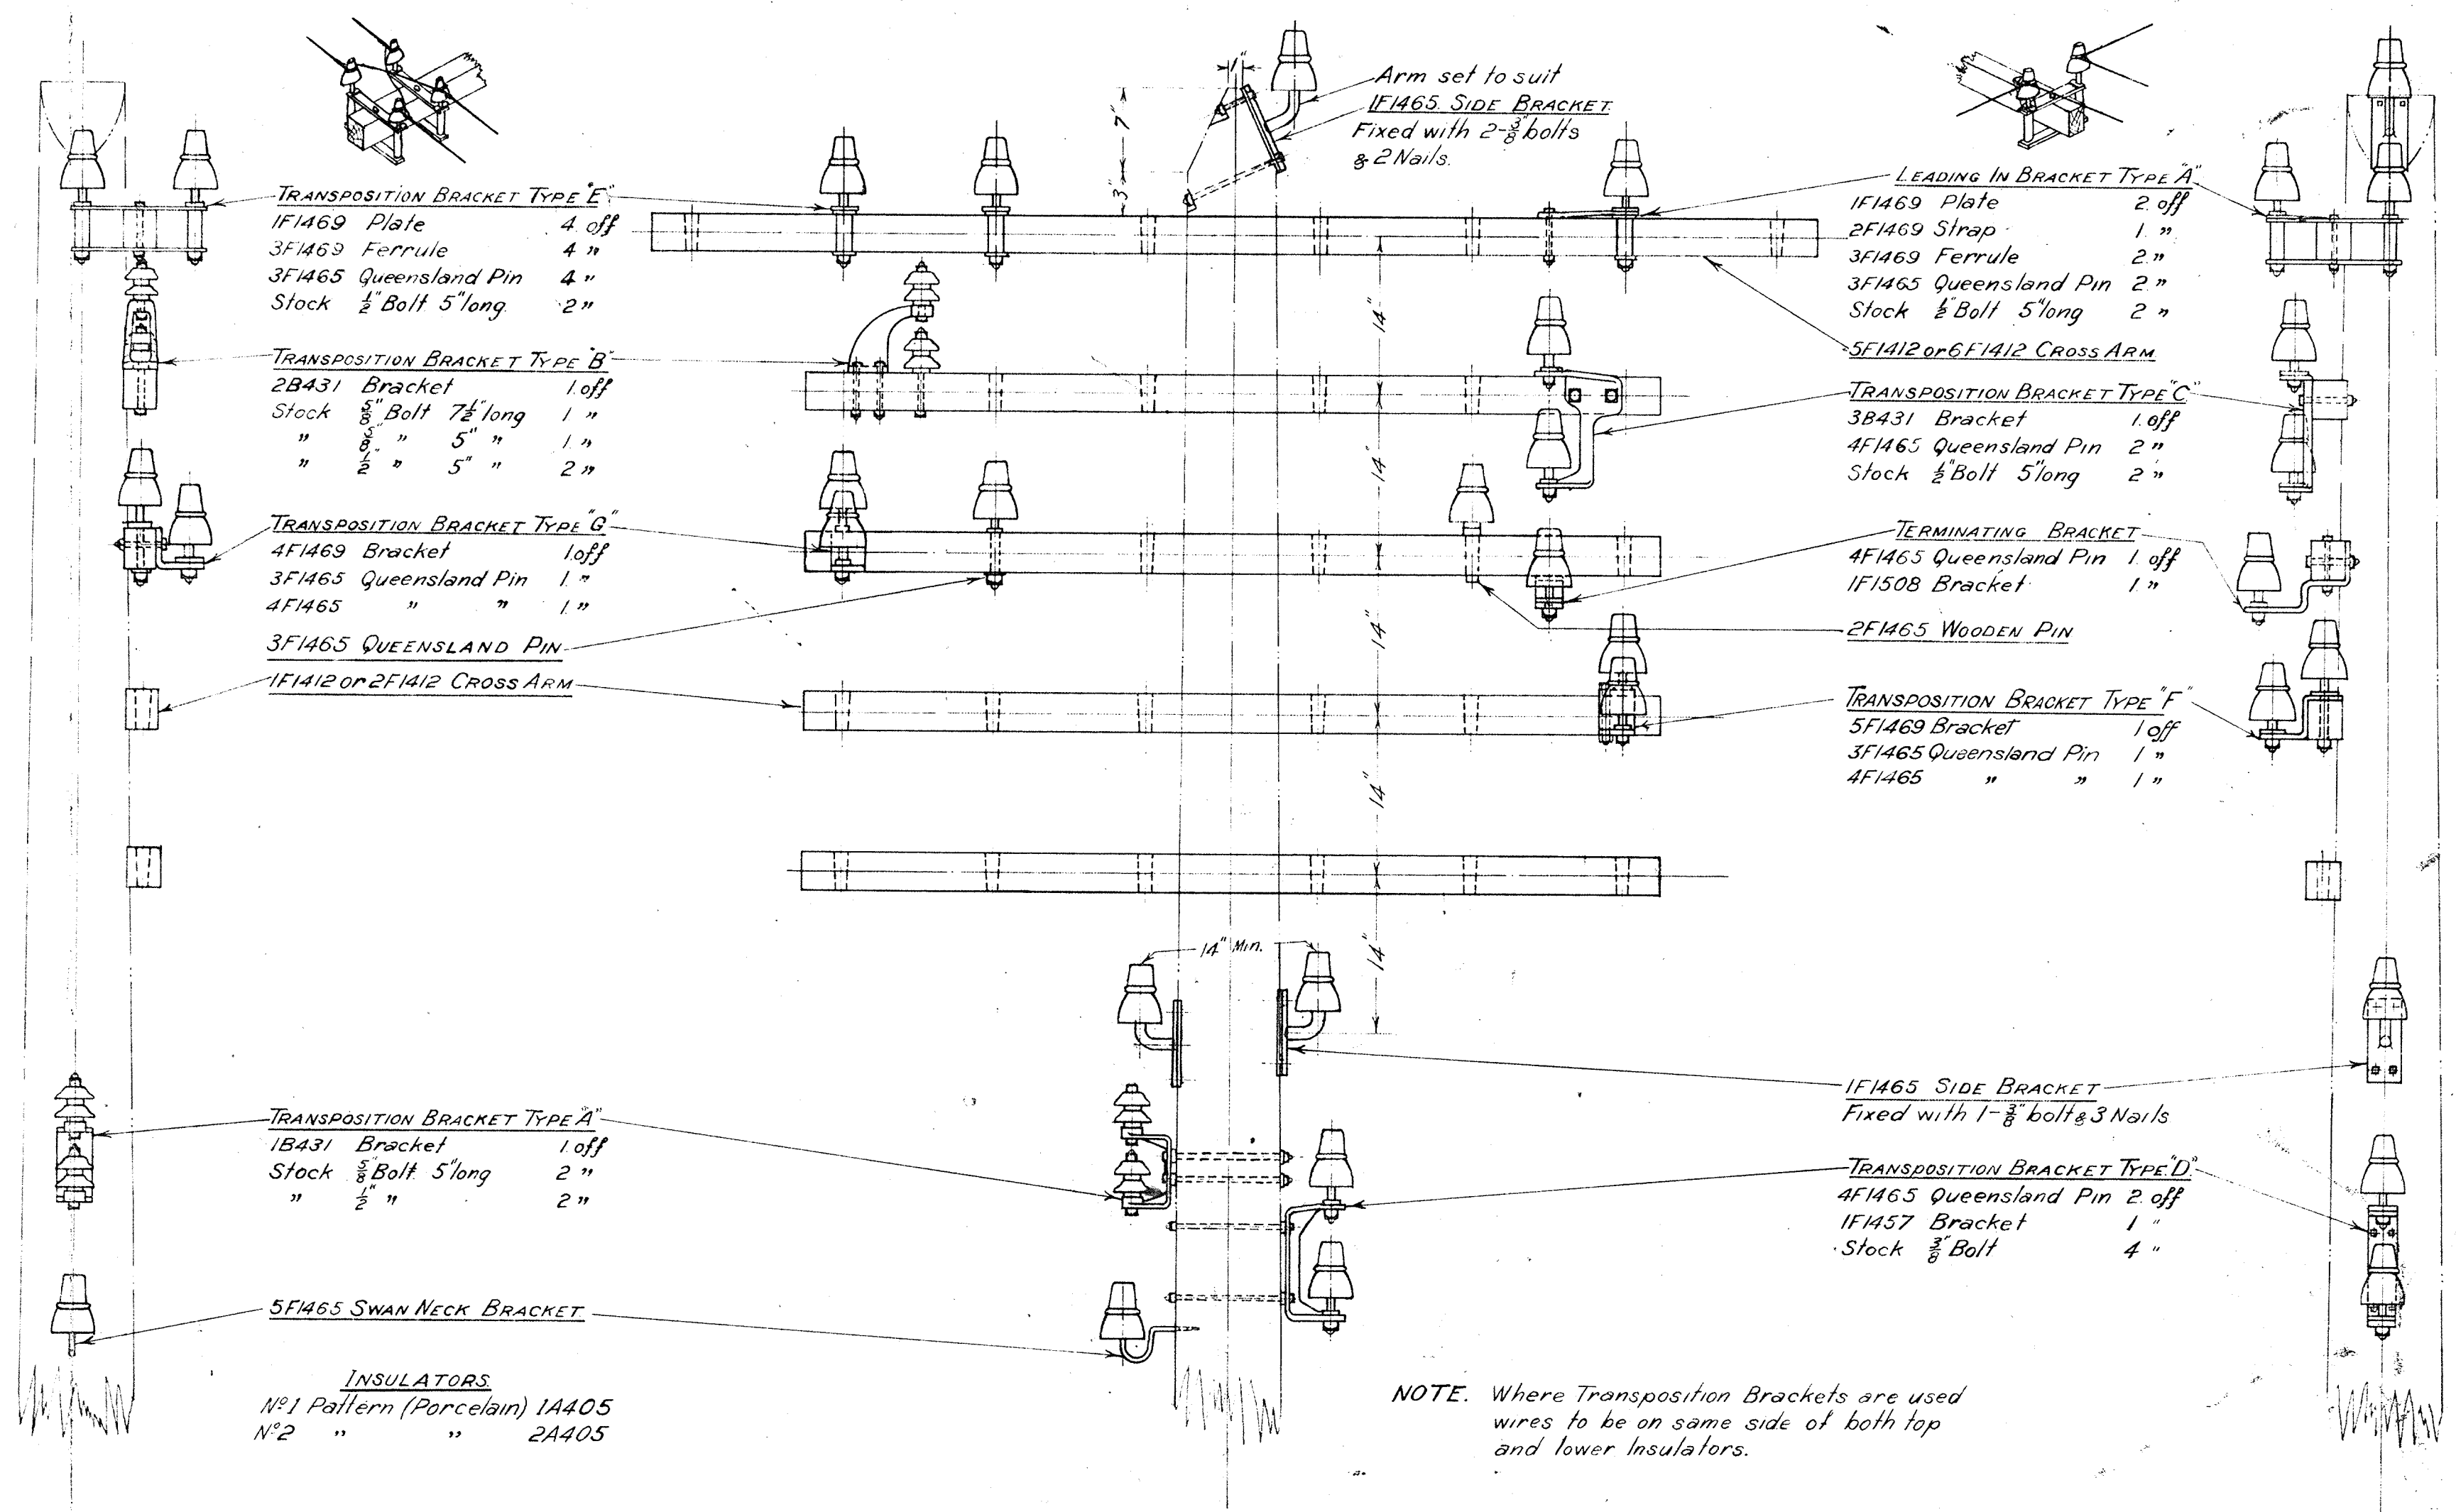 TRANSPOSITION BRACKET TYPE "E"
1F1469 Plate 4 off
3F1469 Ferrule 4 "
3F1465 Queensland Pin 4 "
Stock 1/2" Bolt 5" long. 2 "
TRANSPOSITION BRACKET TYPE "B"
2B431 Bracket 1 off
Stock 5/8" Bolt 7 1/2" long 1 "
" 5/8" " 5" " 1 "
" 1/2" " 5" " 2 "
TRANSPOSITION BRACKET TYPE "G"
4F1469 Bracket 1 off
3F1465 Queensland Pin 1 "
4F1465 " " 1 "
3F1465 QUEENSLAND PIN
1F1412 or 2F1412 CROSS ARM
TRANSPOSITION BRACKET TYPE "A"
1B431 Bracket 1 off
Stock 5/8" Bolt 5" long 2 "
" 1/2" " 2 "
5F1465 SWAN NECK BRACKET
INSULATORS
Nº1 Pattern (Porcelain) 1A405
Nº2 " " 2A405
1"
7"
3"
Arm set to suit
1F1465 SIDE BRACKET
Fixed with 2-3/8" bolts
& 2 Nails.
14"
14"
14"
14"
14"
14" Min.
LEADING IN BRACKET TYPE "A"
1F1469 Plate 2 off
2F1469 Strap 1 "
3F1469 Ferrule 2 "
3F1465 Queensland Pin 2 "
Stock 1/2" Bolt 5" long 2 "
5F1412 or 6F1412 CROSS ARM
TRANSPOSITION BRACKET TYPE "C"
3B431 Bracket 1 off
4F1465 Queensland Pin 2 "
Stock 1/2" Bolt 5" long 2 "
TERMINATING BRACKET
4F1465 Queensland Pin 1 off
1F1508 Bracket 1 "
2F1465 WOODEN PIN
TRANSPOSITION BRACKET TYPE "F"
5F1469 Bracket 1 off
3F1465 Queensland Pin 1 "
4F1465 " " 1 "
1F1465 SIDE BRACKET
Fixed with 1-3/8" bolt & 3 Nails
TRANSPOSITION BRACKET TYPE "D"
4F1465 Queensland Pin 2 off
1F1457 Bracket 1 "
Stock 3/8" Bolt 4 "
NOTE. Where Transposition Brackets are used
wires to be on same side of both top
and lower Insulators.